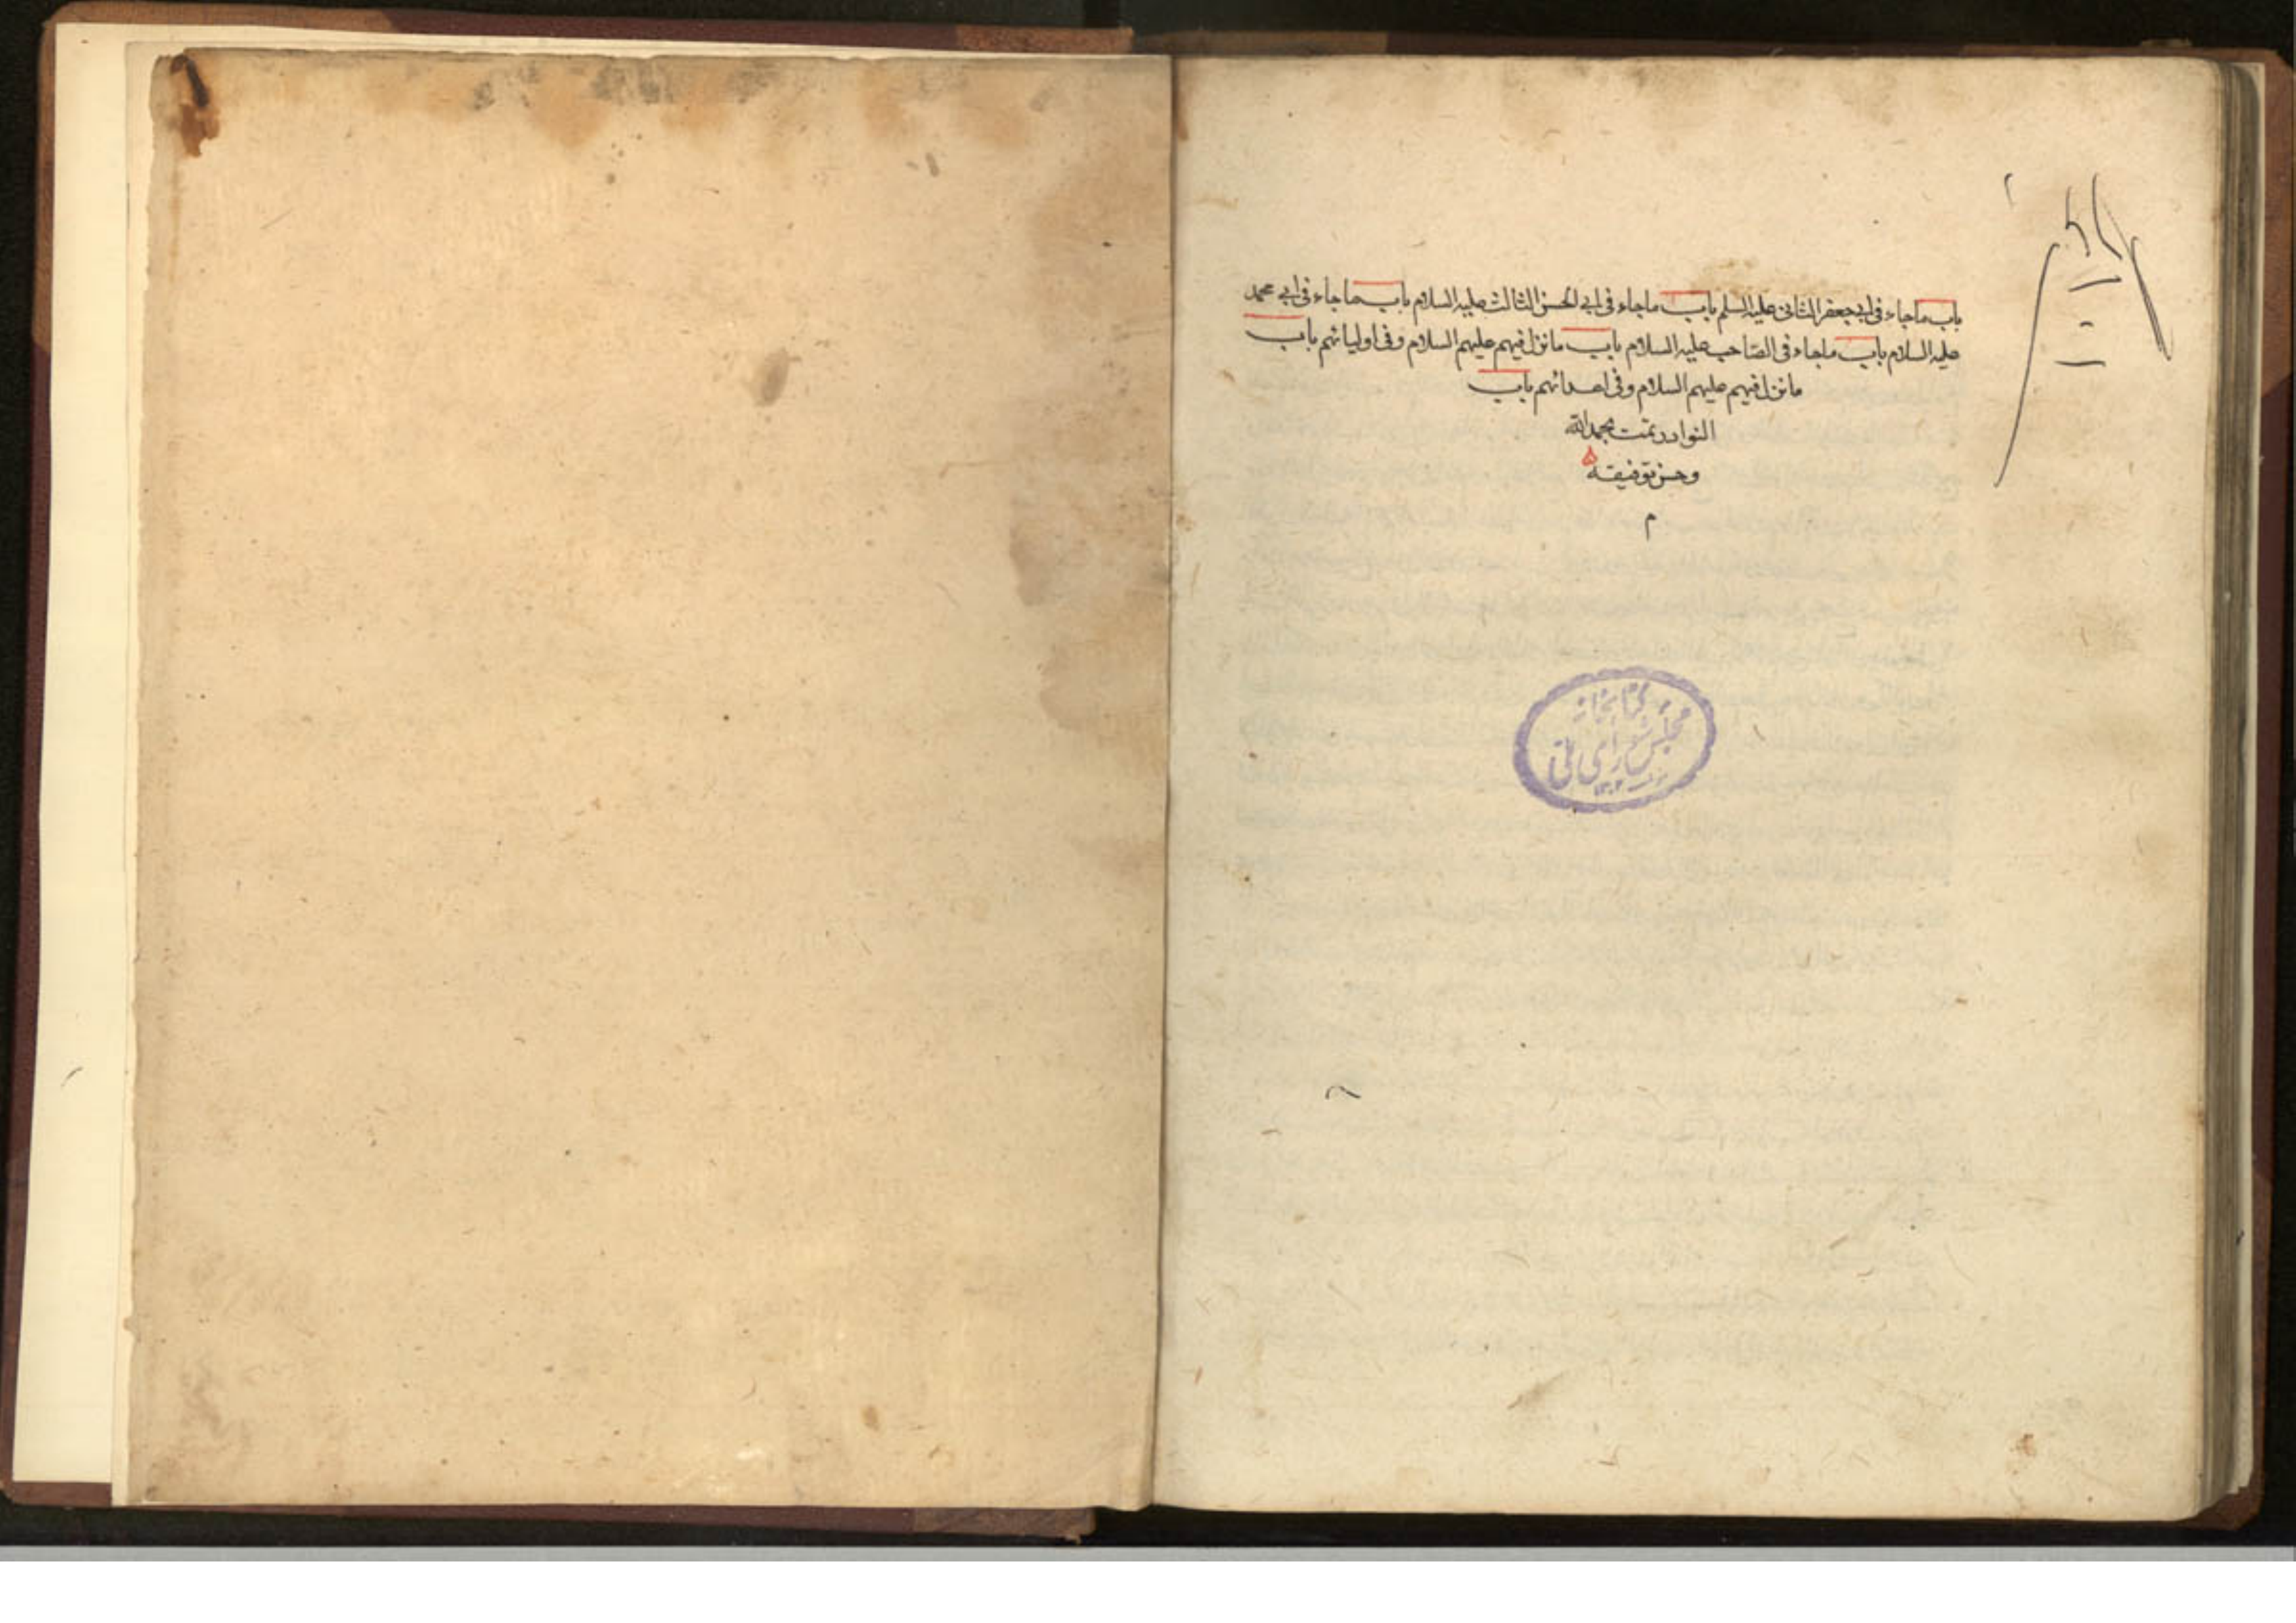 باب ماجاء فى ابى جعفر الثانى عليه السلم باب ماجاء فى ابى الحسن الثالث عليه السلام باب ماجاء فى ابى محمد
عليه السلام باب ماجاء فى الصاحب عليه السلام باب مانزل فيهم عليهم السلام وفى اوليائهم باب
مانزل فيهم عليهم السلام وفى اعدائهم باب
النوادر تمت بحمد الله
وحسن توفيقه
م
كتابخانه
مجلس شوراى ملى